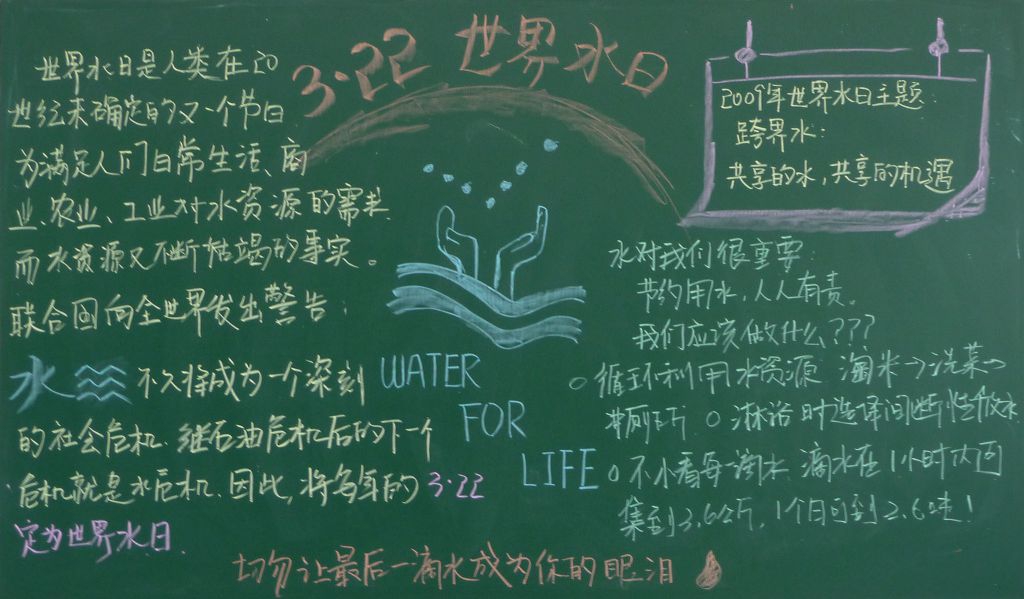 3·22 世界水日
世界水日是人类在20
世纪末确定的又一个节日
为满足人们日常生活、商
业、农业、工业对水资源的需求
而水资源又不断枯竭的事实。
联合国向全世界发出警告:
水 不久将成为一个深刻
的社会危机.继石油危机后的下一个
危机就是水危机.因此,将每年的3·22
定为世界水日.
WATER
FOR
LIFE
2009年世界水日主题:
跨界水:
共享的水,共享的机遇
水对我们很重要:
节约用水,人人有责。
我们应该做什么???
循环利用水资源 淘米→洗菜→
冲厕所 淋浴时选择间断性放水
不小看每滴水 滴水在1小时内可
集到3.6公斤,1个月可到2.6吨!
切勿让最后一滴水成为你的眼泪